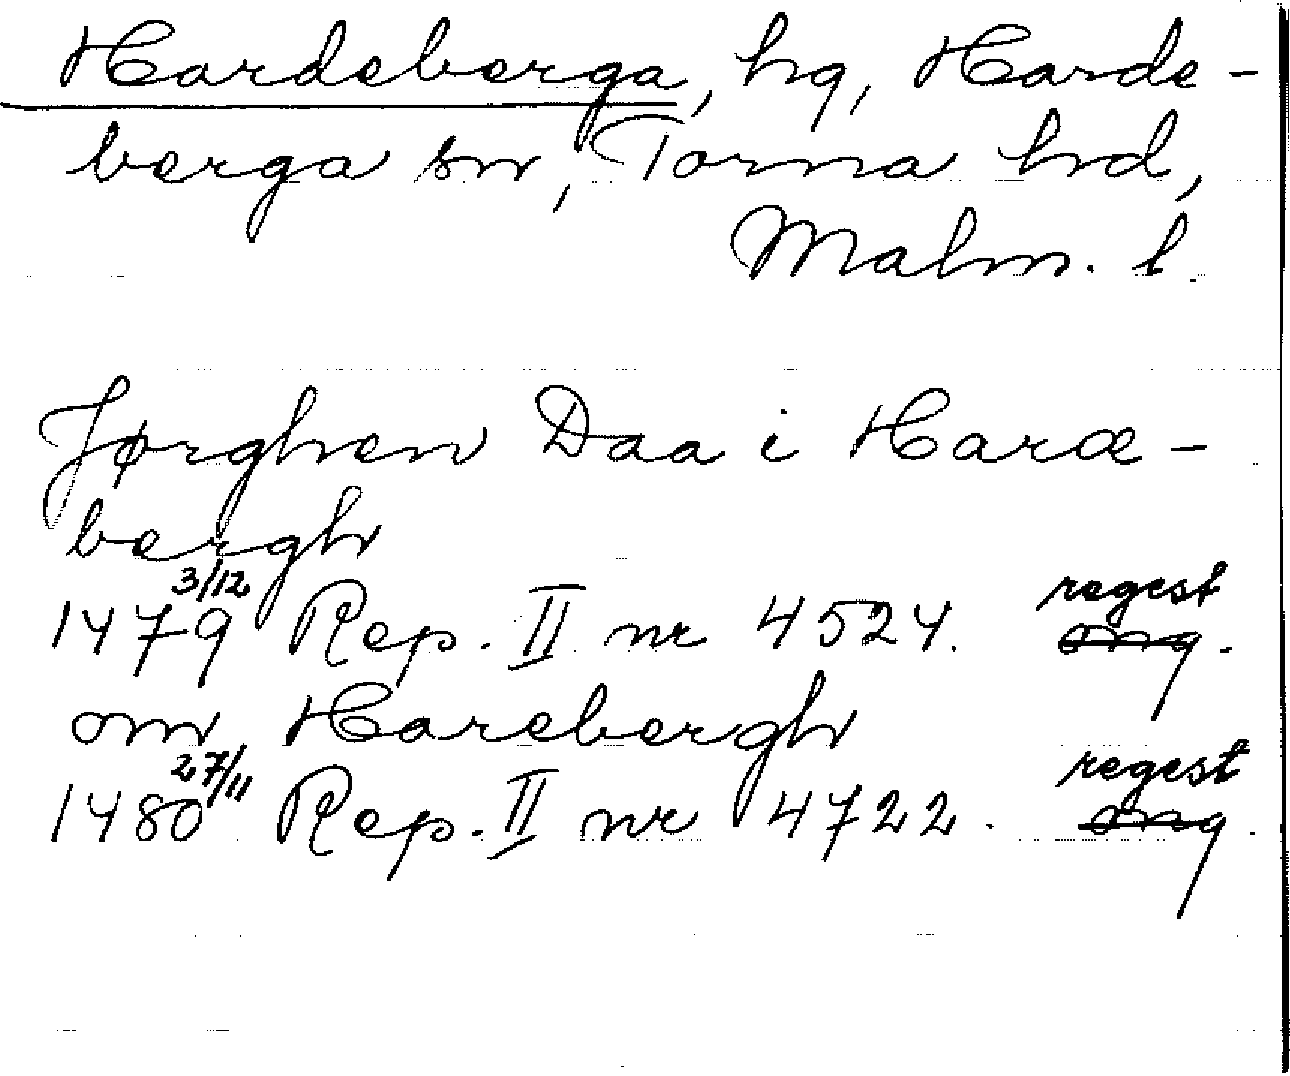 Hardeberga, hg, Harde-
berga sn, Torna hd,
Malm. l.
Jørghen Daa i Haræ-
bergh
3/12
1479 Rep. II nr 4524. regest
org.
om Harebergh
27/11
1480 Rep. II nr 4722. regest
org.